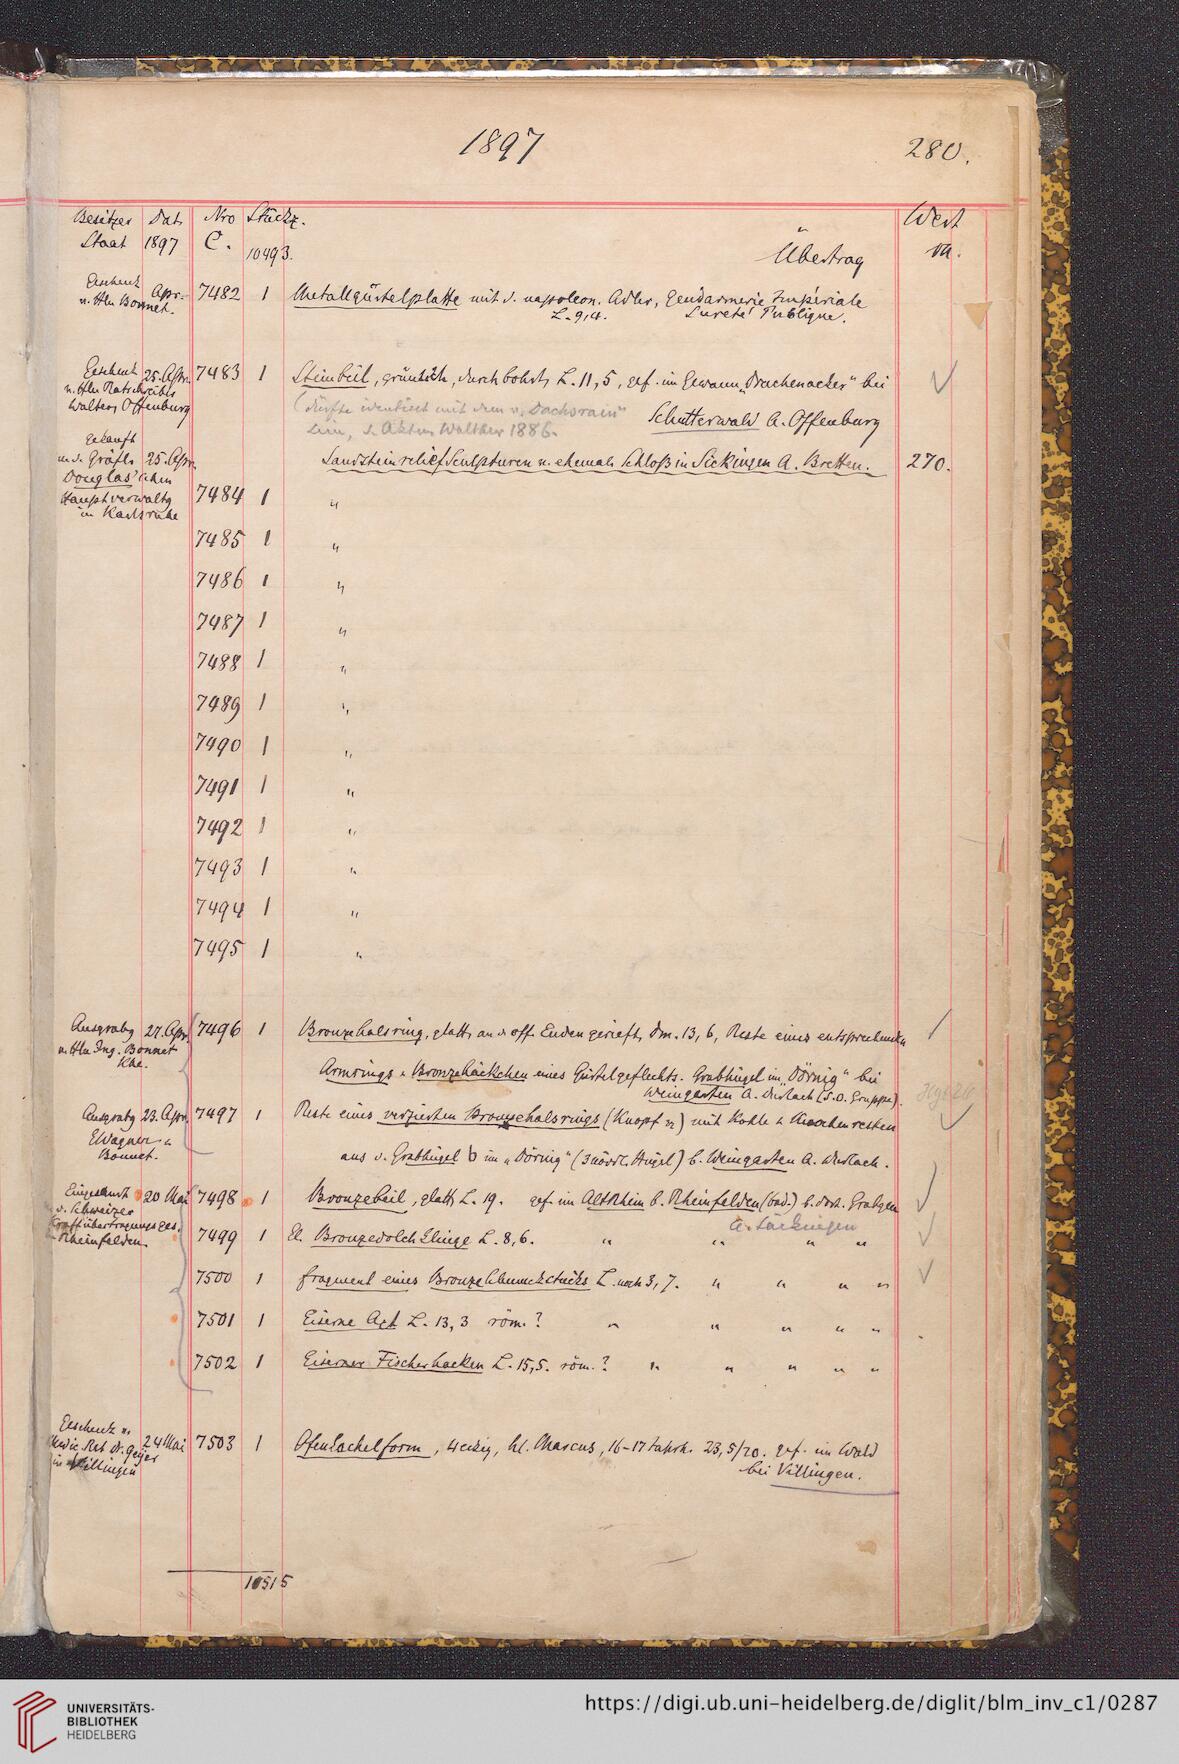 1897
280.
Besitzer Dat. Nro Stückz. Wert
Staat 1897 C. 10493. Übertrag M.
Geschenk
v. Hrn Bonnet. Apr. 7482 1 Metallgürtelplatte mit d. napoleon. Adler, Gendarmerie Impériale
L. 9,4. Sureté Publique.
Geschenk 25. Apr. 7483 1 Steinbeil, grünlich, durchbohrt, L. 11,5, gef. im Gewann „Drachenacker" bei
v. Hrn Ratschreiber
Walter, Offenburg
(dürfte identisch mit dem v. „Dachsrain"
Schutterwald A. Offenburg
sein, s. Akten Walther 1886.
gekauft
v. d. Gräfl. 25. Apr. Sandsteinrelief Sculpturen v. ehemal. Schloß in Sickingen A. Bretten. 270.
Douglas'schen
Hauptverwaltg
in Karlsruhe
7484 1 "
7485 1 "
7486 1 "
7487 1 "
7488 1 "
7489 1 "
7490 1 "
7491 1 "
7492 1 "
7493 1 "
7494 1 "
7495 1 "
Ausgrabg 27. Apr. 7496 1 Bronzehalsring, glatt, an d. off. Enden gerieft, Dm. 13,6, Reste eines entsprechenden
v. Hrn Ing. Bonnet
Khe.
Armrings u. Bronzehäckchen eines Gürtelgeflechts. Grabhügel im „Dörnig" bei
Weingarten A. Durlach (S.O. Gruppe).
Ausgrabg 23. Apr. 7497 1 Reste eines verzierten Bronzehalsrings (Knopf) mit Kohle u. Knochenresten
E Wagner u.
Bonnet.
aus d. Grabhügel b im „Dörnig" (3 nördl. Hügel) b. Weingarten A. Durlach.
Eingesandt 20 Mai 7498 1 Bronzebeil, glatt, L. 19. gef. im Altrhein b. Rheinfelden (bad.) b. dort. Grabgen
v. Schweizer
Kraftübertragungsges.
Rheinfelden.
A. Säckingen
7499 1 Kl. Bronzedolch Klinge L. 8,6. " " " "
7500 1 Fragment eines Bronzeschmuckstücks L. noch 3,7. " " " "
7501 1 Eiserne Axt L. 13,3 röm.? " " " " "
7502 1 Eiserner Fischerhacken L. 15,5. röm.? " " " " "
Geschenk v.
Medic. Rat Dr. Geijer
in Villingen
24 Mai 7503 1 Ofenkachelform, 4eckig, hl. Marcus, 16-17 Jahrh. 23,5/20. gef. im Wald
bei Villingen.
10515
UNIVERSITÄTS-
BIBLIOTHEK
HEIDELBERG
https://digi.ub.uni-heidelberg.de/diglit/blm_inv_c1/0287